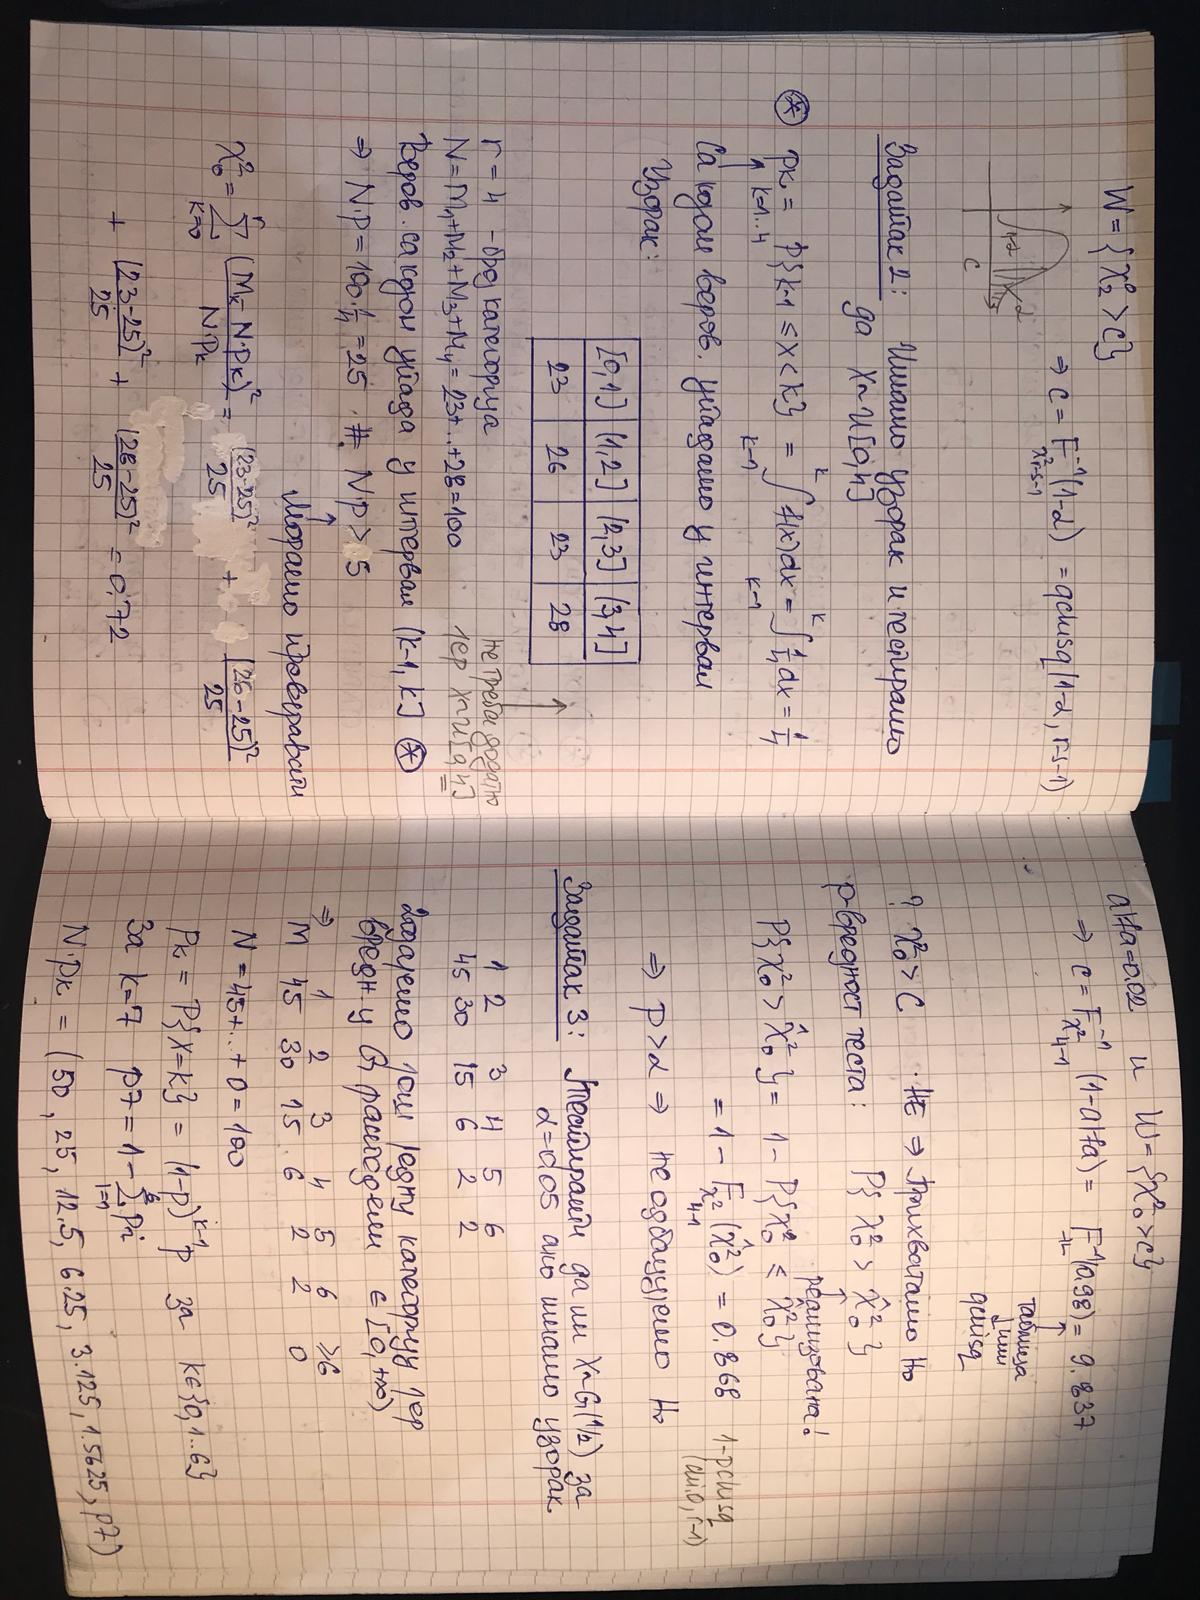 W = {χ²₀ > c} ⇒ c = F⁻¹χ²r-s-1 (1-α) = qchisq(1-α, r-s-1)
1-α α
c
Задатак 2: Имамо узорак и тестирамо
да X~U[0,4]
⊛ pk = P{k-1 ≤ X < k} = ∫ f(x)dx = ∫ 1/4 dx = 1/4
k=1..4
Са којом веров. упадамо у интервал
Узорак:
[0,1] (1,2] (2,3] (3,4]
23 26 23 28
r = 4 - број категорија
не треба додатно
јер X~U[0,4]
N = M1+M2+M3+M4 = 23+..+28=100
Веров. са којом упада у интервал (k-1, k] ⊛
⇒ N·p = 100·1/4 = 25 Np > 5
Морамо проверавати
χ²₀ = Σ (Mk - N·pk)² / N·pk = (23-25)²/25 + (26-25)²/25
+ (23-25)²/25 + (28-25)²/25 = 0,72
alfa=0.02 и W={χ²₀>c}
⇒ c = F⁻¹χ²4-1 (1-alfa) = F⁻¹(0,98) = 9.837
таблица
или
qchisq
? χ²₀ > C НЕ ⇒ Прихватамо H₀
p-вредност теста: P{χ²₀ > χ̂²₀}
реализована!
P{χ²₀ > χ̂²₀} = 1 - P{χ²₀ ≤ χ̂²₀}
= 1 - Fχ²4-1 (χ̂²₀) = 0.868
1-pchisq
⇒ p>α ⇒ не одбацујемо H₀
Задатак 3: Тестирати да ли X~G(1/2) за
α=0.05 ако имамо узорак
1 2 3 4 5 6
45 30 15 6 2 2
Додајемо још једну категорију јер
вредн у G расподели ∈ [0,+∞)
⇒ 1 2 3 4 5 6 >6
M 45 30 15 6 2 2 0
N = 45+..+0=100
pk = P{X=k} = (1-p)^k-1 p за k∈{0,1..6}
За k=7 p7 = 1 - Σ pi
N·pk = (50, 25, 12.5, 6.25, 3.125, 1.5625, p7)